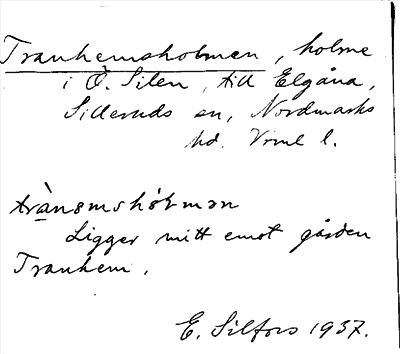 Tranhemsholmen, holme
i Ö. Silen, till Elgåna,
Silleruds sn, Nordmarks
hd. Vrml l.
trànəmshòlmən
Ligger mitt emot gården
Tranhem.
E. Silfors 1937.